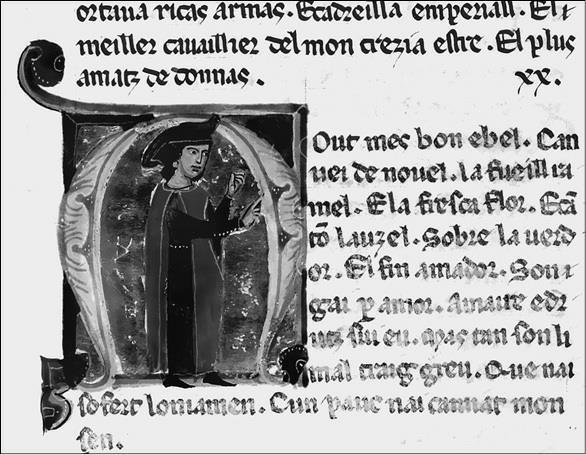 ortaua ricas armas. Ecadreilla emperiall. El
meiller cauaillier del mon crezia estre. El plus
amatz de donnas. xx.
Out mes bon ebel. Can
uei de nouel. la fueill
mel. Ela fresca flor. Ecā
tō lauzel. Sobre la uerd
or. El fin amador. Son
gai p amor. Amaire edr
utz sui eu. Mas tan son li
mal traig greu. Que nai
sofert loniamen. Cun pauc nai camiat mon
sen.